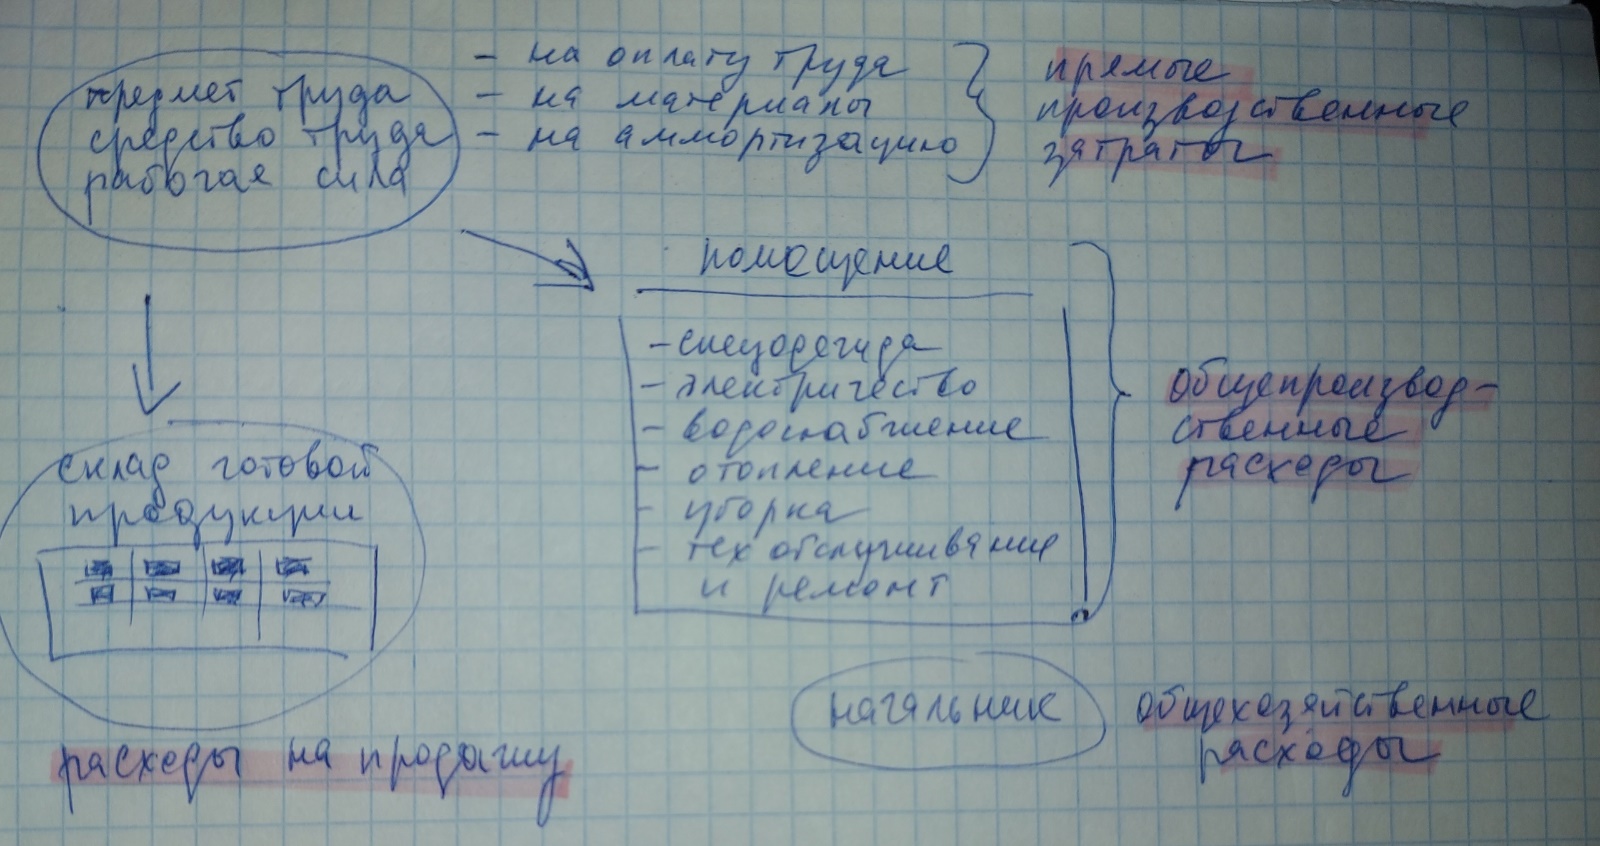 предмет труда
средство труда
рабочая сила
- на оплату труда
- на материалы
- на аммортизацию
прямые
производственные
затраты
помещение
- спецодежда
- электричество
- водоснабжение
- отопление
- уборка
- тех обслуживание
и ремонт
общепроизвод-
ственные
расходы
склад готовой
продукции
расходы на продажу
начальник
общехозяйственные
расходы